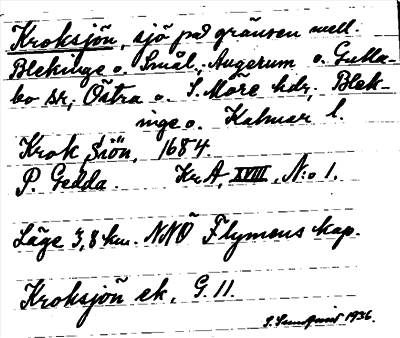 Kroksjön, sjö på gränsen mell.
Blekinge o. Smål., Augerum o. Gulla-
bo sr, Östra o. S. Möre hdr, Blek-
inge o. Kalmar l.
Krok Siön, 1684
P. Gedda. Kr A, XVIII, N:o 1.
Läge 3,8 km. NNÖ Flymens kap.
Kroksjön ek, G. 11.
S. Sundquist 1936.